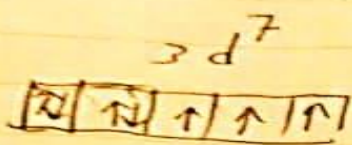 3d⁷
|⇅|⇅|↑|↑|↑|